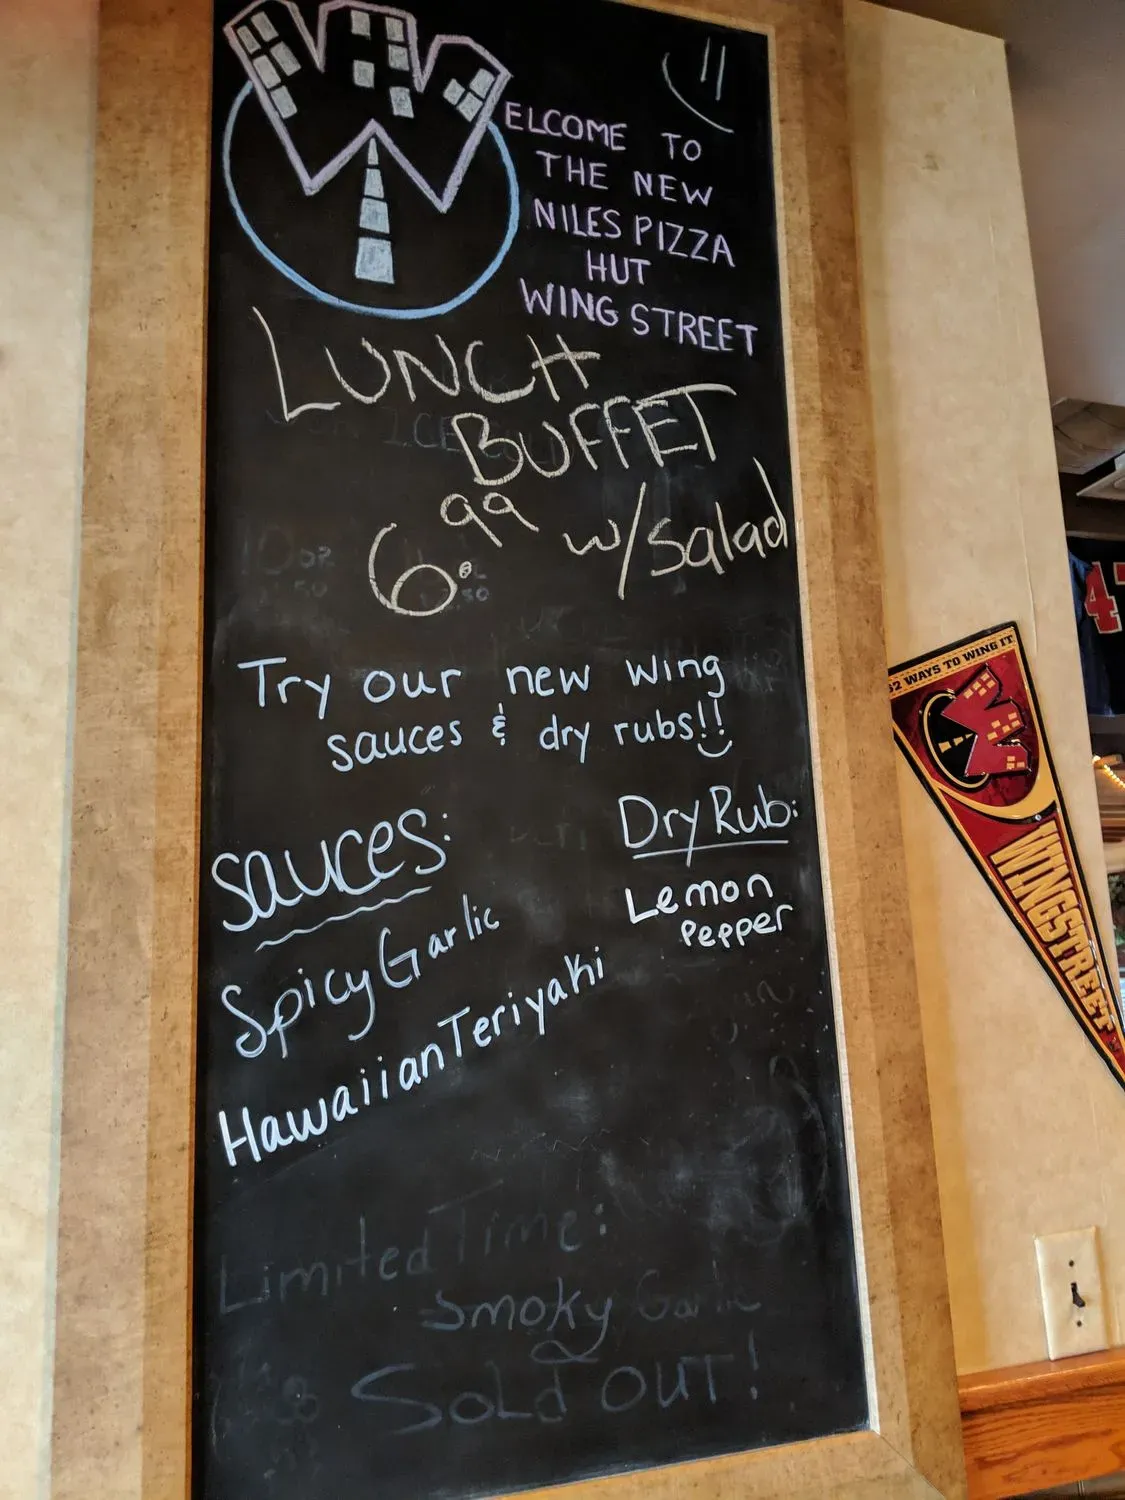 WELCOME TO
THE NEW
NILES PIZZA
HUT
WING STREET
LUNCH
BUFFET
6.99 w/salad
Try our new wing
sauces & dry rubs!!
Sauces:
Spicy Garlic
Hawaiian Teriyaki
Dry Rub:
Lemon
Pepper
Limited Time:
Smoky Garlic
Sold OUT!
52 WAYS TO WING IT
WINGSTREET
4